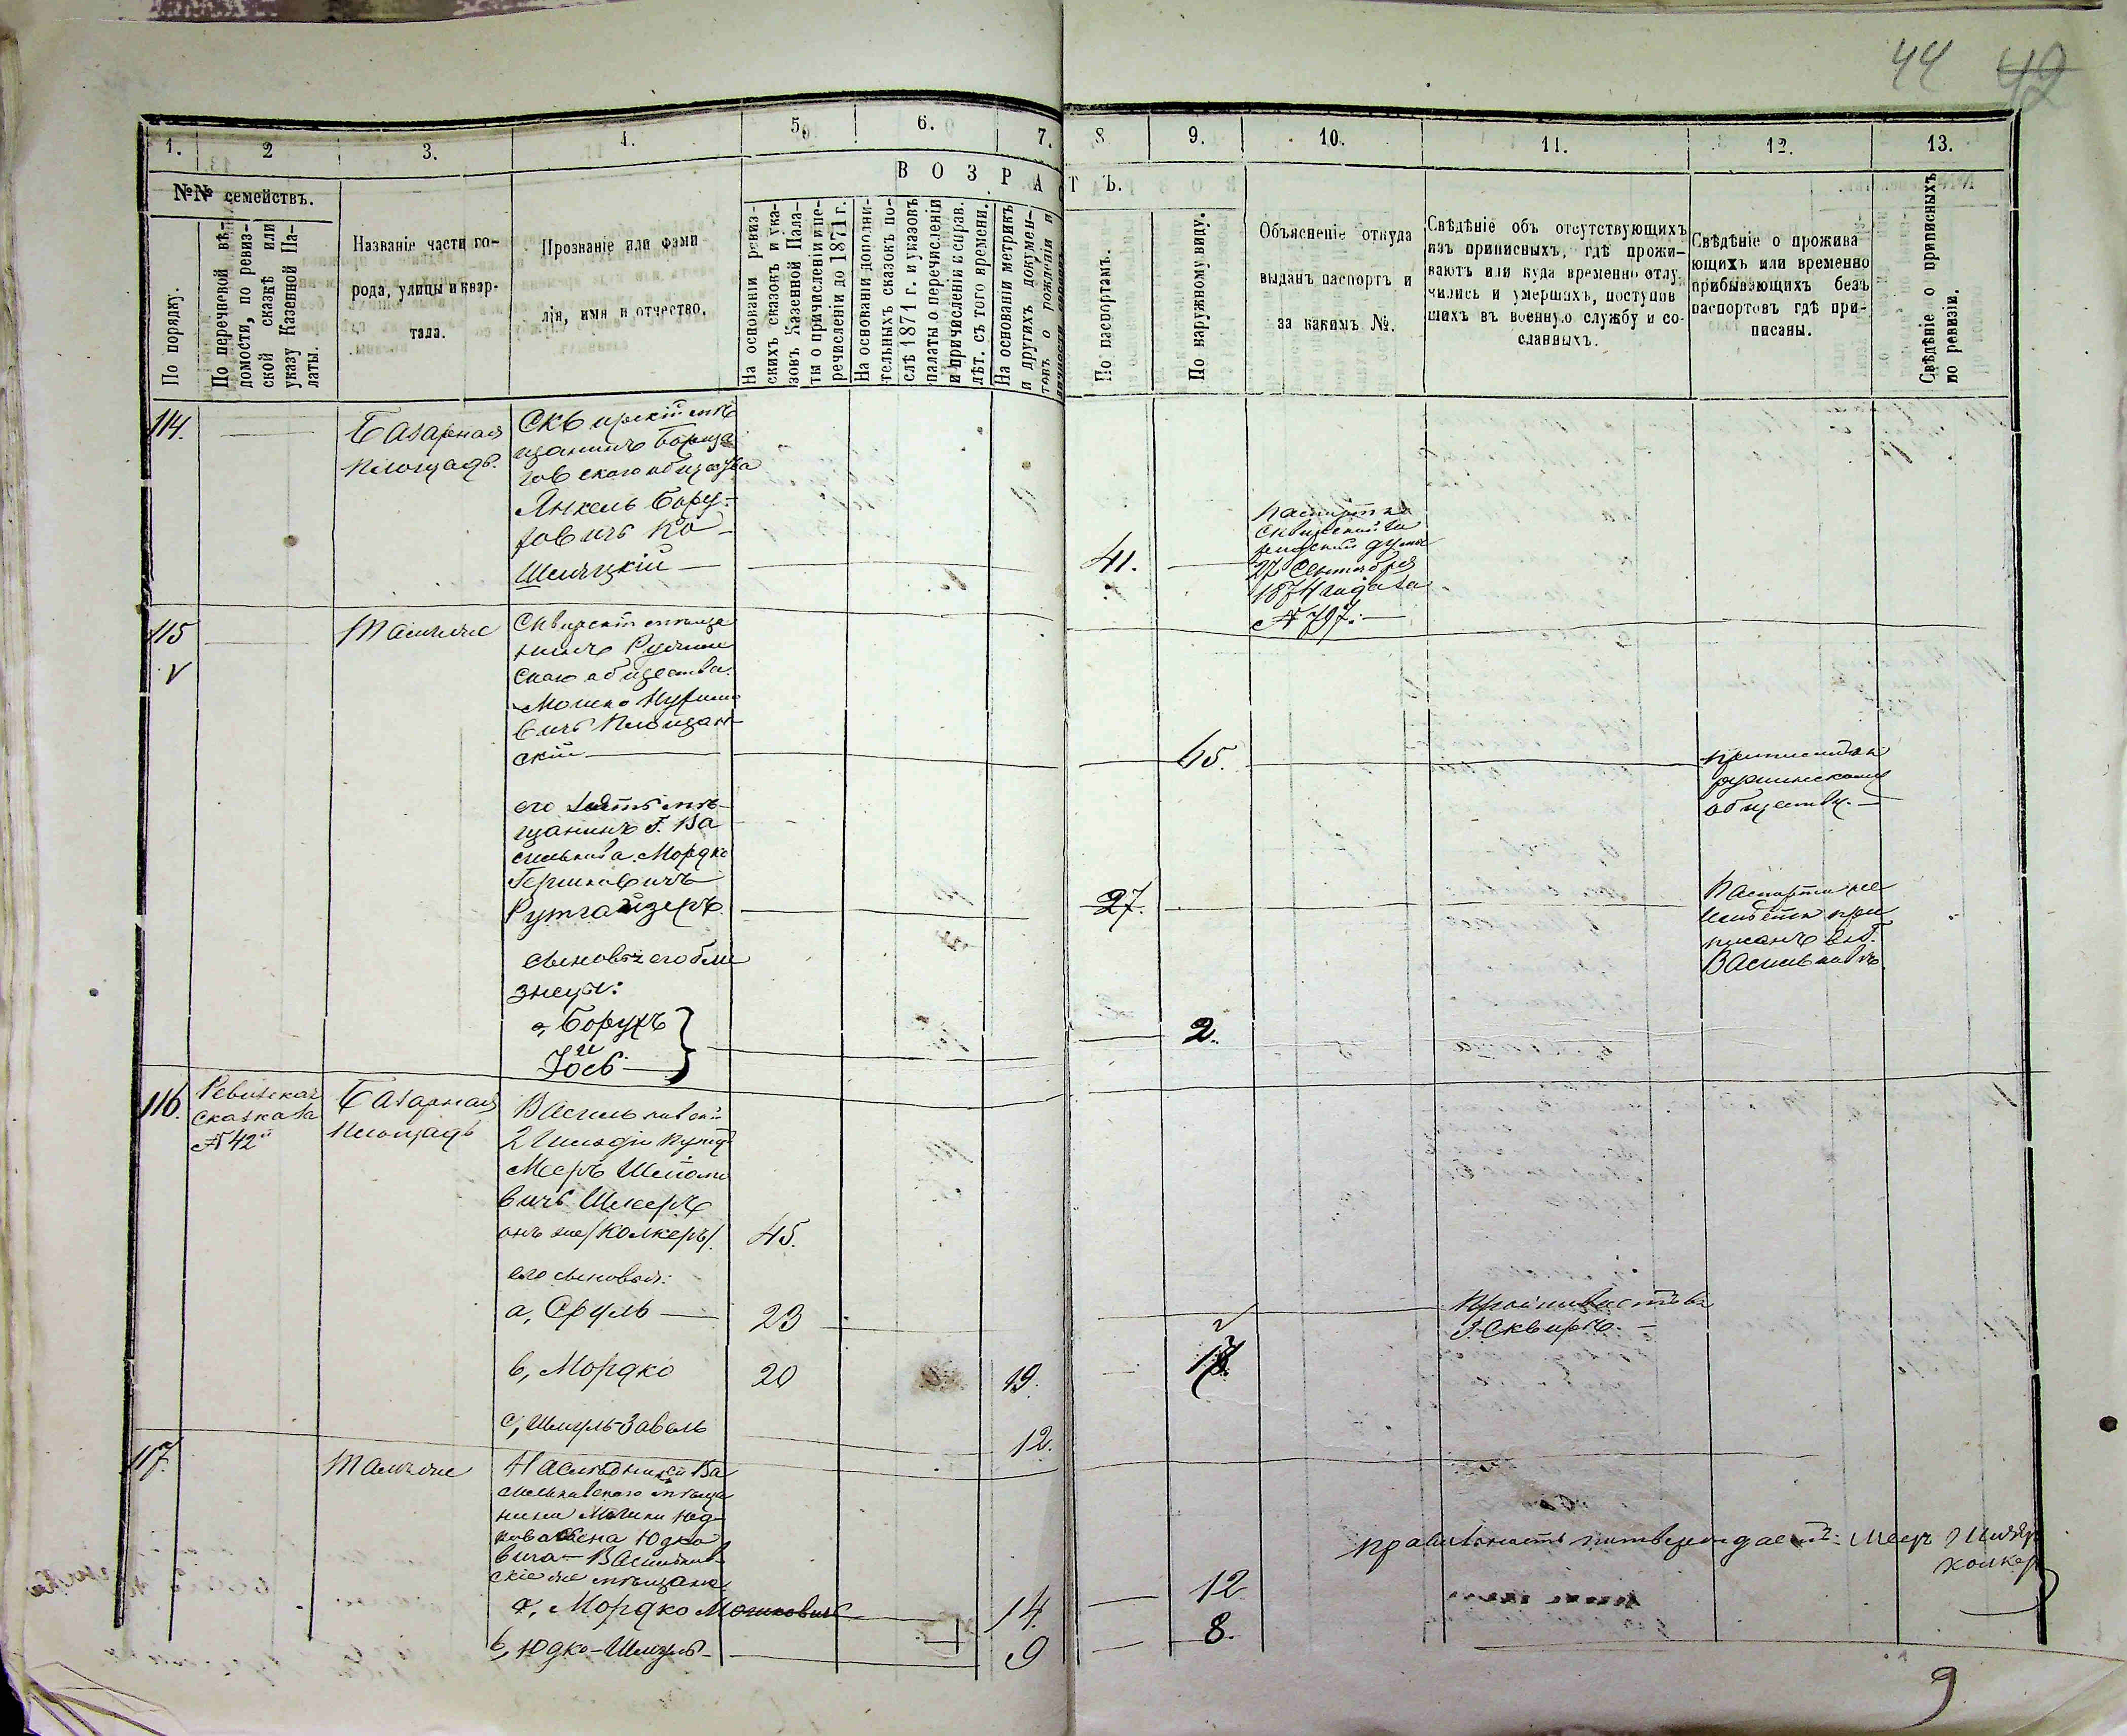 44 42
1. 2 3. 4. 5. 6. 7. 8. 9. 10. 11. 12. 13.
№№ семействъ.
В О З Р А Т Ъ.
По порядку.
По перечневой вѣ-
домости, по ревиз-
ской сказкѣ или
указу Казенной Па-
латы.
Названіе части го-
рода, улицы и квар-
тала.
Прозваніе или фами-
лія, имя и отчество.
На основаніи ревиз-
скихъ сказокъ и ука-
зовъ Казенной Пала-
ты о причисленіи и пе-
речисленіи до 1871 г.
На основаніи дополни-
тельныхъ сказокъ по-
слѣ 1871 г. и указовъ
палаты о перечисленіи
и причисленіи и справ.
лѣт. съ того времени.
На основаніи метрикъ
и другихъ докумен-
товъ о рожденіи и
По паспортамъ.
По наружному виду.
Объясненіе откуда
выданъ паспортъ и
за какимъ №.
Свѣдѣніе объ отсутствующихъ
изъ приписныхъ, гдѣ прожи-
ваютъ или куда временно отлу-
чились и умершихъ, поступив
шихъ въ военную службу и со-
сланныхъ.
Свѣдѣніе о прожива
ющихъ или временно
прибывающихъ безъ
паспортовъ гдѣ при-
писаны.
Свѣдѣніе о приписныхъ
по ревизіи.
114.
Базарная
площадь.
Сквирскій мѣ
щанинъ
общества
Янкель Бору-
ховичъ Ко-
41.
Паспортъ
Сквирской го
родской думы
27 Сентября
187
№ 797.
115
Тамъ же
Сквирскій мѣща
нинъ Ружин
скаго общества
Мошко
вичъ Площан-
скій
65.
Ружинскому
обществу.
его зять мѣ-
щанинъ г. Ва
силькова Мордко
Гершковичъ
Рутгайзеръ.
27.
Паспорта не
имѣетъ при
писанъ въ г.
Васильковѣ.
сыновья его бли
знецы:
а, Борухъ
и
Іось
2.
116.
Ревизская
сказка за
№ 42
Базарная
площадь
Васильковскій
2 Гильдіи купецъ
Мееръ
вичъ
онъ же /Колкеръ/.
45.
его сыновья:
а, Сруль
23
Проживаетъ въ
г. Сквирѣ.
в, Мордко
20
19.
с, Шмуль-Завель
12.
117.
Тамъ же
Наслѣдники Ва
сильковскаго мѣща
нина Мошки Юд-
кова сына Юдко
вича Васильков-
скіе же мѣщане
а, Мордко Мошковичъ
14.
12
в, Юдко-Шмуль
9
8.
правильность потверждаетъ: Мееръ
колкер
9